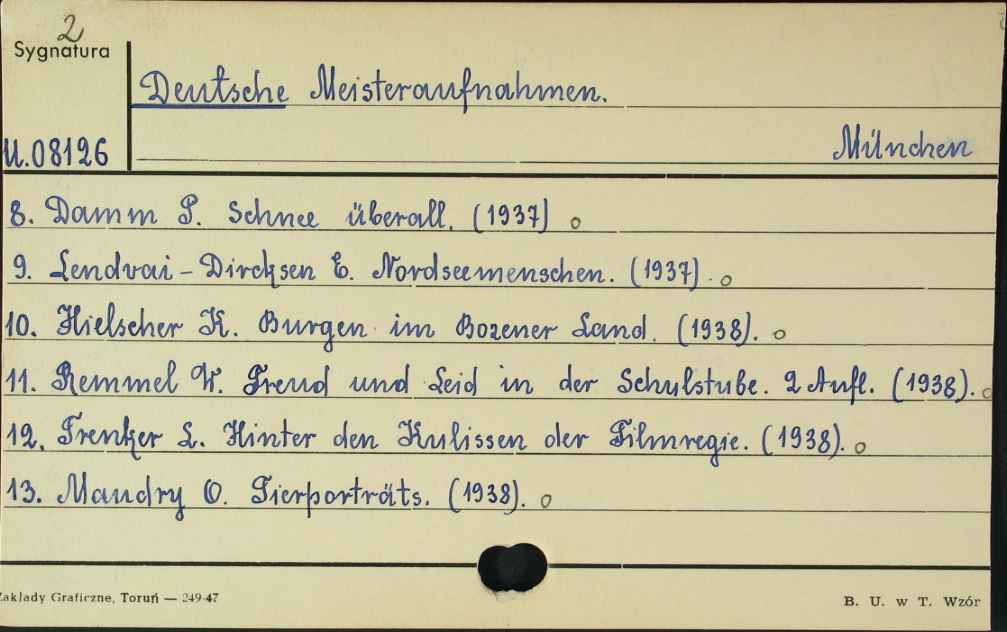 2
Sygnatura
Deutsche Meisteraufnahmen.
U.08126
München
8. Damm P. Schnee überall. (1937) o
9. Lendvai-Dircksen E. Nordseemenschen. (1937). o
10. Hielscher K. Burgen im Bozener Land. (1938). o
11. Remmel W. Freud und Leid in der Schulstube. 2 Aufl. (1938). o
12. Trenker L. Hinter den Kulissen der Filmregie. (1938). o
13. Maudry O. Tierporträts. (1938). o
Zakłady Graficzne, Toruń — 249-47
B. U. w T. Wzór